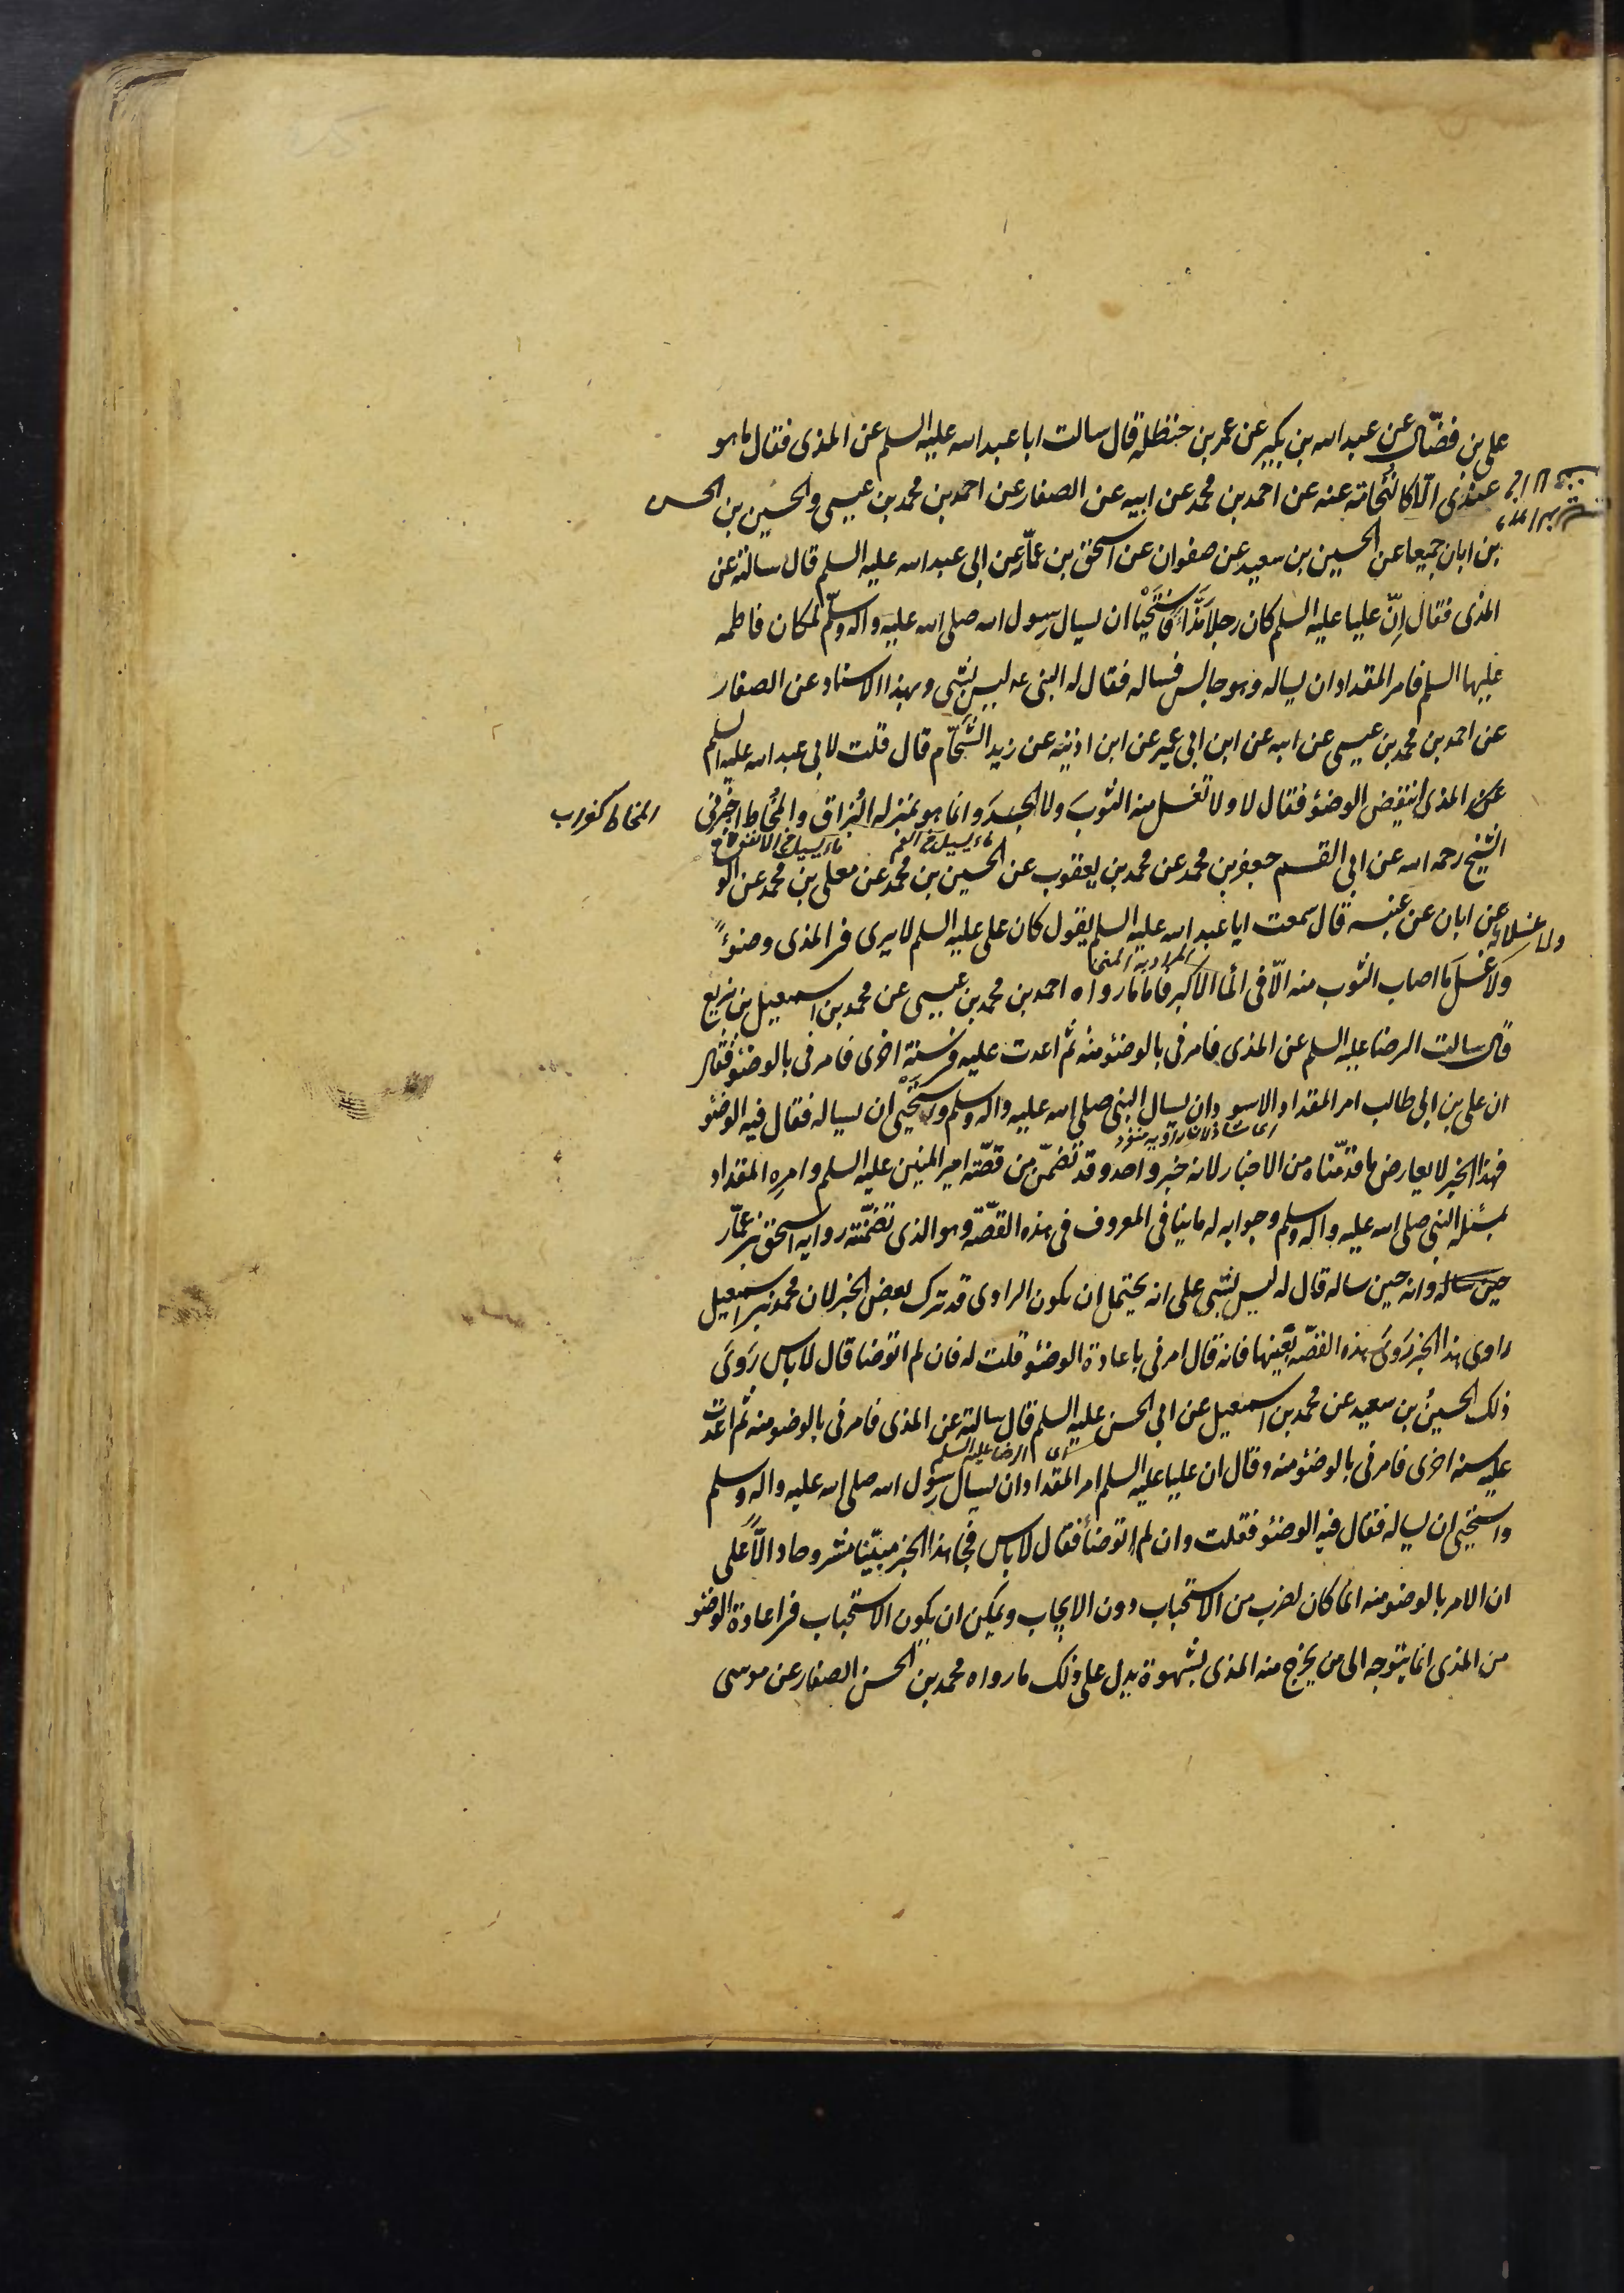 علی بن فضّال عن عبد الله بن بکیر عن عمر بن حنظله قال سالت ابا عبد الله علیه السلم عن المذی فقال ما هو
عندی الّا کالنُّخامة عنه عن احمد بن محمد عن ابیه عن الصفار عن احمد بن محمد بن عیسی والحسین بن الحسن
بن ابان جمیعا عن الحسین بن سعید عن صفوان عن اسحق بن عمّار عن ابی عبد الله علیه السلم قال سالته عن
المذی فقال اِنّ علیا علیه السلم کان رجلا مَذّاءً فاستَحْیَا ان یسال رسول الله صلی الله علیه واله وسلّم لمکان فاطمه
علیها السلم فامر المقداد ان یساله وهو جالس فساله فقال له النبی ع لیس بشی وبهذا الاسناد عن الصفار
عن احمد بن محمد بن عیسی عن ابیه عن ابن ابی عمیر عن ابن اذینه عن زید الشَّحّام قال قلت لابی عبد الله علیه السلم
عن المذی اینقض الوضئو فقال لا ولا تغسل منه الثوبَ ولا الجسدَ وانما هو بمنزله البُزاق والمُخاط اخبرنی
المخاط کغراب
ماء یسیل من الفم
ماء یسیل من الانف
الشیخ رحمه الله عن ابی القسم جعفر بن محمد عن محمد بن یعقوب عن الحسین بن محمد عن معلی بن محمد عن الو
شاء عن ابان عن عنبسه قال سمعت ابا عبد الله علیه السلم یقول کان علی علیه السلم لا یری فی المذی وضوءً
المراد به المنی
ولا غَسلَ ما اصاب الثوب منه الّا فی الماء الاکبر فاما ما رواه احمد بن محمد بن عیسی عن محمد بن اسمعیل بن بزیع
قال سالت الرضا علیه السلم عن المذی فامرنی بالوضئو منه ثم اعدت علیه فی سنة اخری فامرنی بالوضئو فقال
ان علی بن ابی طالب امر المقداد الاسود ان یسال النبی صلی الله علیه واله وسلم واستَحْیی ان یساله فقال فیه الوضئو
ای شاذ لان راویه منفرد
فهذا الخبر لا یعارض ما قدّمناه من الاخبار لانه خبر واحد وقد تضمّن من قصّة امیر المنین علیه السلم وامره المقداد
بمسئله النبی صلی الله علیه واله وسلم وجوابه له ما ینافی المعروف فی هذه القصّة وهو الذی تضمّنته روایه اسحق بن عمّار
حین ساله وانه حین ساله قال له لیس بشی علی انه یحتمل ان یکون الراوی قد ترک بعض الخبر لان محمد بن اسمعیل
راوی هذا الخبر رَویَ هذه القصّه بعَینها فانه قال امرنی باعادة الوضئو قلت له فان لم اتوضا قال لا باس رَوَی
ذلک الحسینُ بن سعید عن محمد بن اسمعیل عن ابی الحسن علیه السلم قال سالته عن المذی فامرنی بالوضو منه ثم اعدت
ای الرضا علیه السلم
علیه سنه اخری فامرنی بالوضئو منه وقال ان علیا علیه السلم امر المقداد ان یسال رسول الله صلی الله علیه واله وسلم
واستحیی ان یساله فقال فیه الوضئو فقلت وان لم اتوضا فقال لا باس فجاء هذا الخبر مبیّنا مشروحا دالّاً علی
ان الامر بالوضو منه انما کان لضرب من الاستحباب دون الایجاب ویمکن ان یکون الاستحباب فی اعادة الوضو
من المذی انما یتوجه الی من یخرج منه المذی بشهوة یدل علی ذلک ما رواه محمد بن الحسن الصفار عن موسی